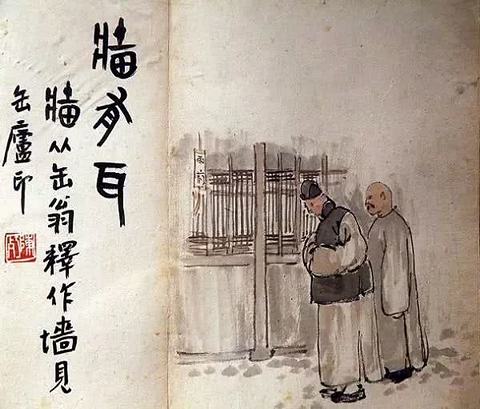 牆有耳
牆从缶翁釋作墻見
缶廬印
雨前